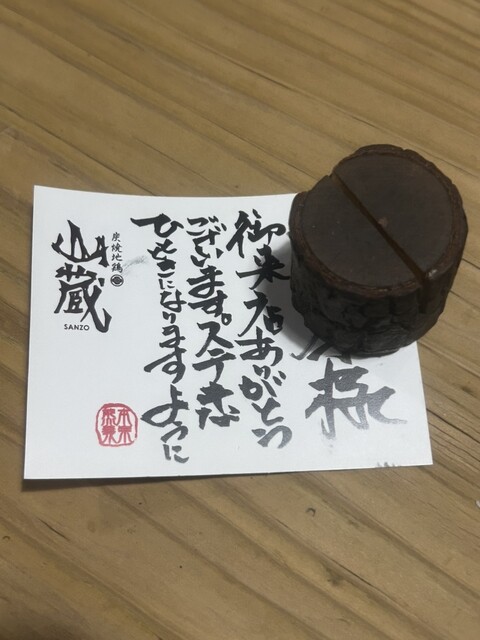 様
御来店ありがとう
ございます。ステキな
ひとときになりますように
炭焼地鶏
山蔵
SANZO